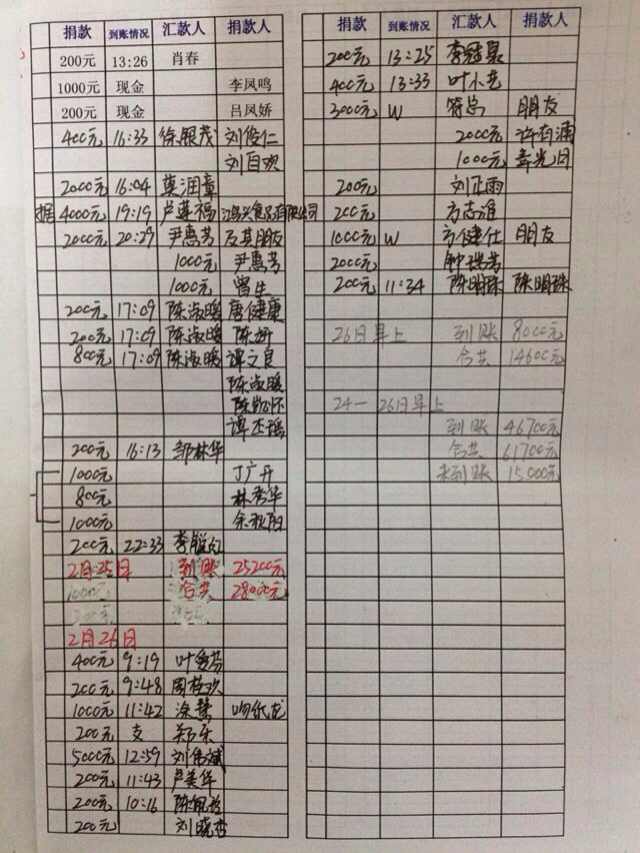 捐款 到账情况 汇款人 捐款人
200元 13:26 肖春
1000元 现金 李凤鸣
200元 现金 吕凤娇
400元 16:33 徐银茂 刘俊仁
刘百欢
2000元 16:04 莫润章
据 4000元 19:19 卢莲福 食品有限公司
2000元 20:29 尹惠芳 及其朋友
1000元 尹惠芳
1000元 曾生
200元 17:09 陈淑暖 唐健康
200元 17:09 陈淑暖 陈妍
800元 17:09 陈淑暖 谭文良
陈淑暖
陈勁怀
谭丕
200元 16:13 邹林华
1000元 丁广开
800元 林秀华
1000元 余秋阳
200元 22:33 李
2月25日 到账 25200元
1000元 合共 28000元
2月26日
400元 9:19 叶爱芬
200元 9:48 周桂欢
1000元 11:42 涂慧
200元 支 郑乐
5000元 12:59 刘伟斌
200元 11:43 卢美华
200元 10:16 陈佩
200元 刘晓杏
捐款 到账情况 汇款人 捐款人
200元 13:25 李
400元 13:33 叶小
3000元 W 符总 朋友
2000元 许有浦
1000元 光日
200元 刘正雨
200元 方志雄
1000元 W 方健仕 朋友
2000元 钟瑞芳
200元 11:34 陈明珠 陈明珠
26日早上 到账 8000元
合共 14600元
24一26日早上
到账 46700元
合共 61700元
未到账 15000元